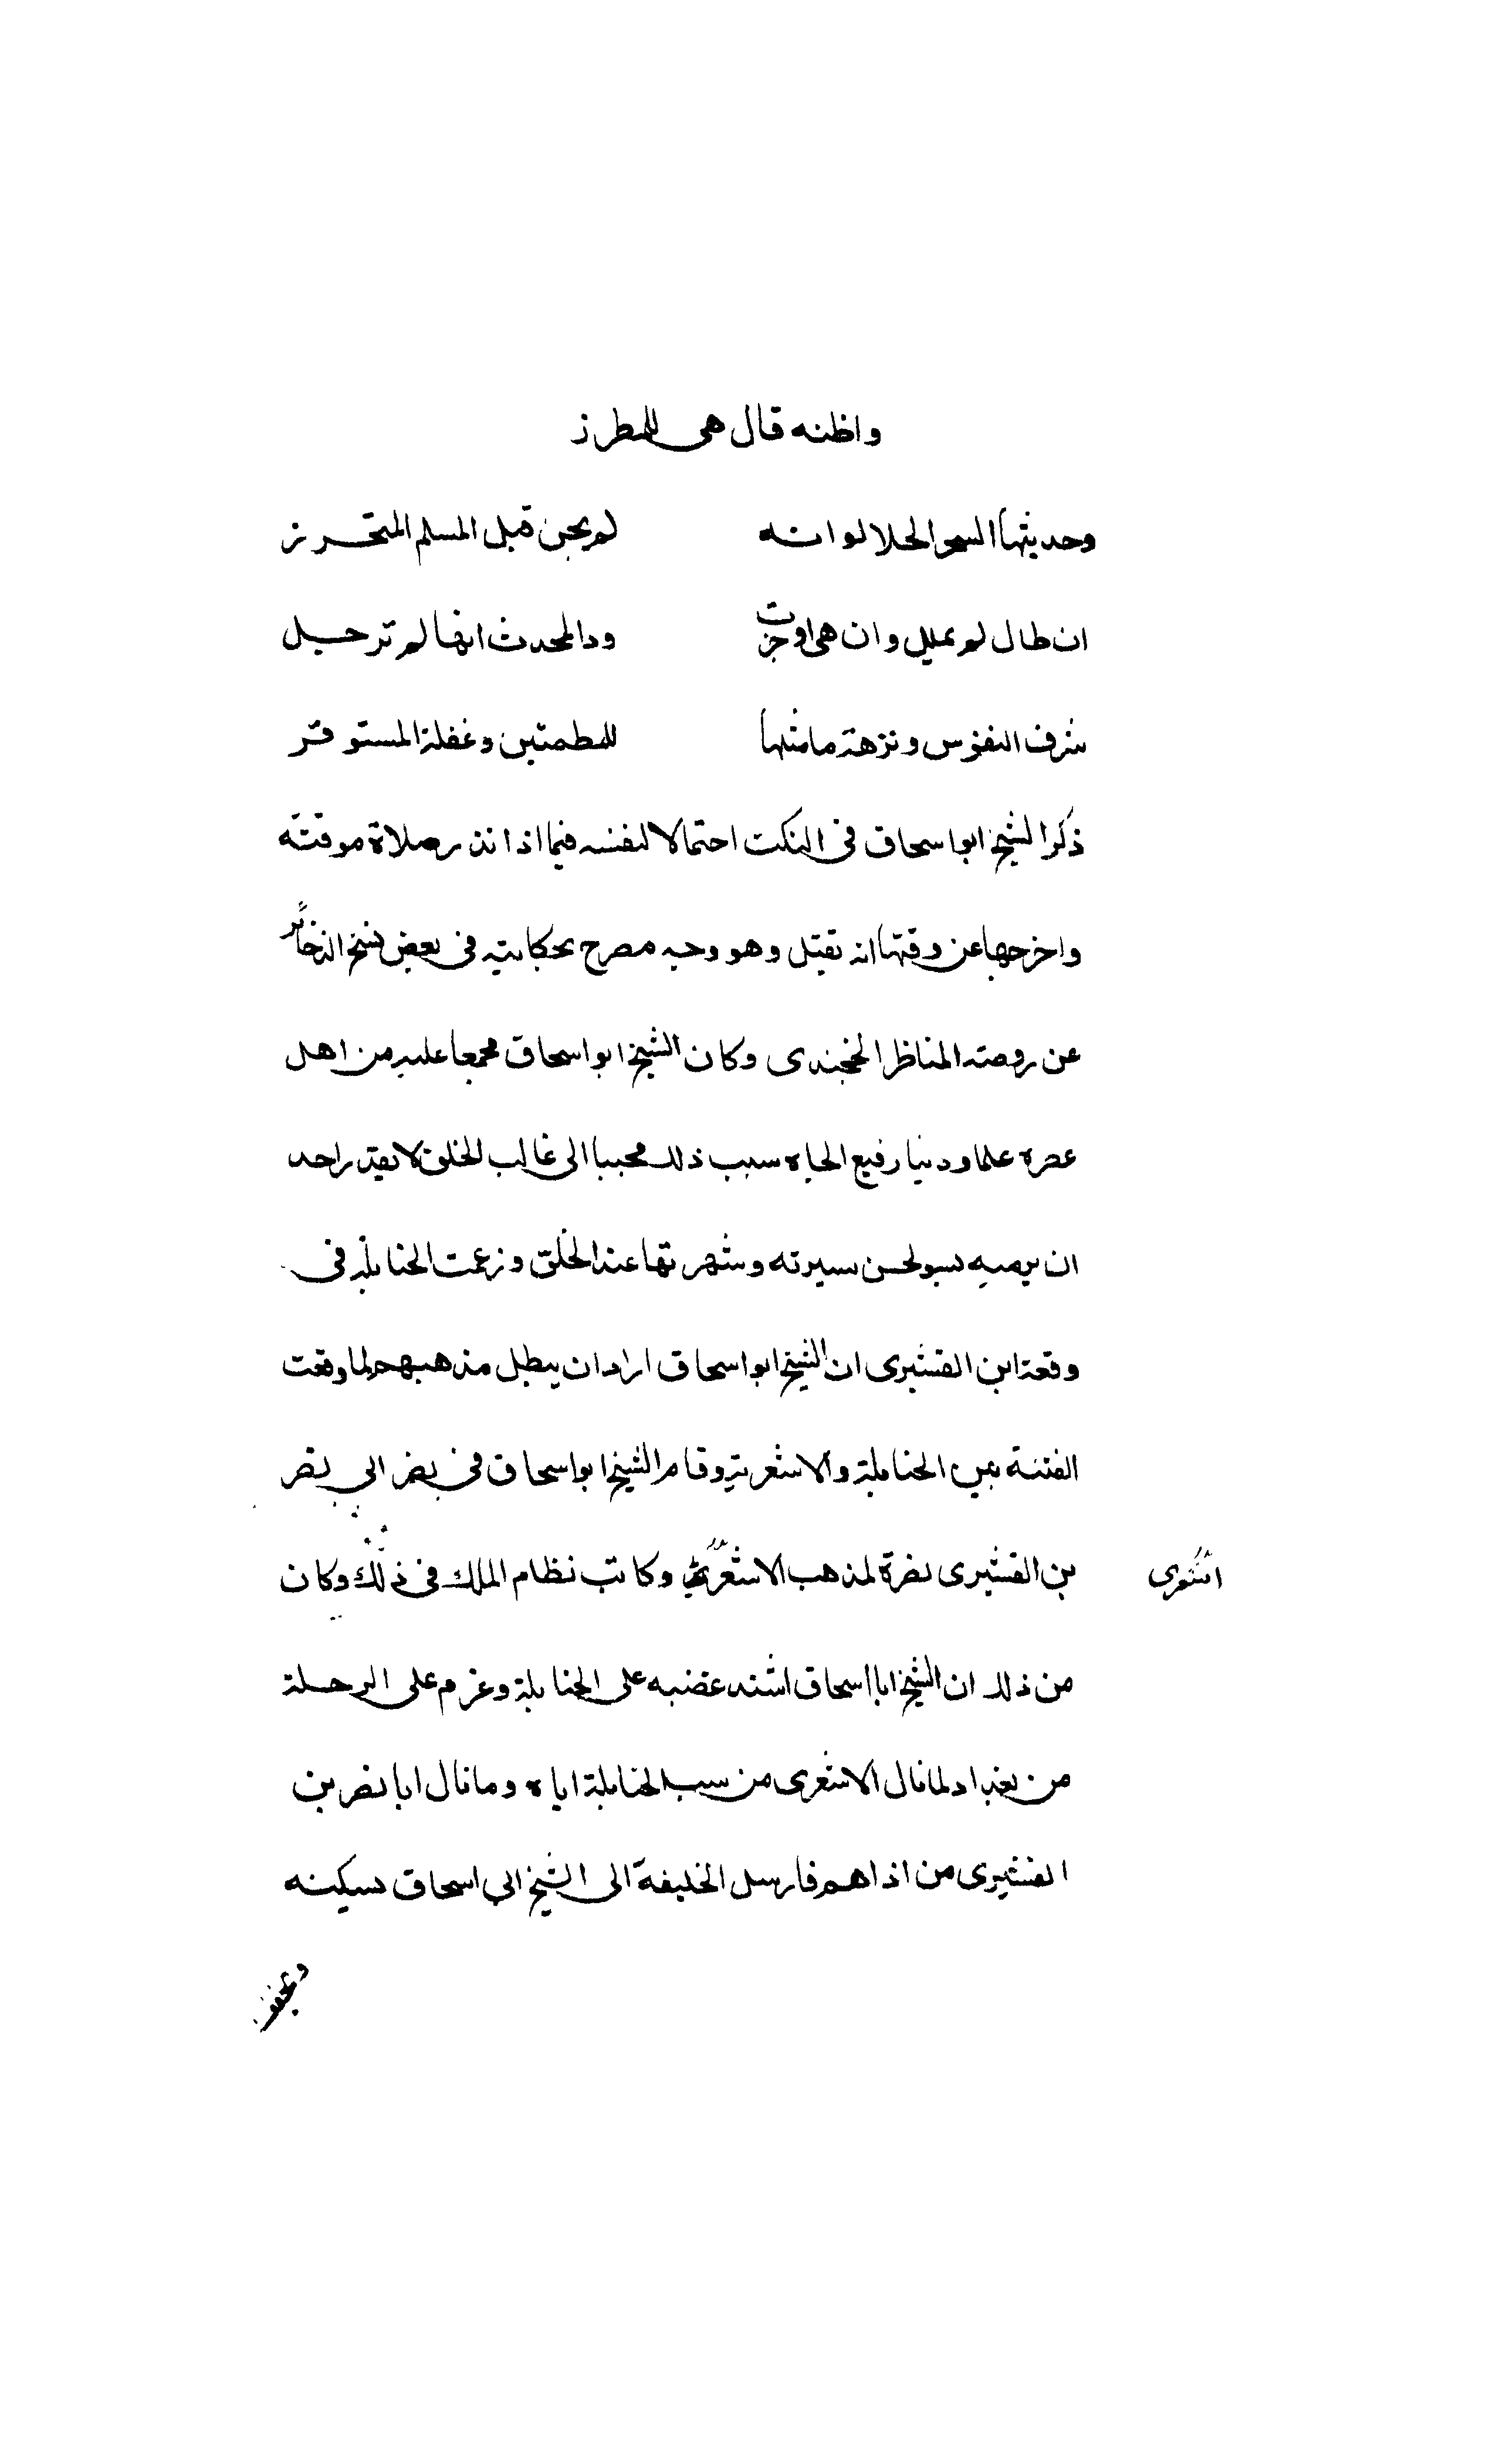 واظنه قال هى للمطرز
وحديثها السحر الحلال لو انه لم يجن قبل المسلم المتحرز
ان طال لم يملل وان هى اوجزت ود المحدث انها لم ترحيل
شرف النفوس ونزهة ما مثلها للمطمئين وغفلة المستوقر
ذكر الشيخ ابو اسحاق فى النكت احتمالا لنفسه فيما اذا نذر صلاة موقتة
واخرجها عن وقتها انه تقبل وهو وجه مصرح بحكايته فى بعض نسخ الذخائر
عن روضة المناظر الخجندى وكان الشيخ ابو اسحاق مجمعا عليه من اهل
عصره علما ودينا رفيع الجاه بسبب ذلك محببا الى غالب الخلق لا يقدر احد
ان يرميه بسو لحسن سيرته وشهرتها عند الخلق وزعمت الحنابلة فى
وقعة ابن القشيرى ان الشيخ ابو اسحاق اراد ان يبطل مذهبهم لما وقعت
الفتنة بين الحنابلة والاشعرية وقام الشيخ ابو اسحاق فى نصر ابى نصر
بن القشيرى نصرة لمذهب الاشعرى وكاتب نظام الملك فى ذلك وكان
اشعرى
من ذلك ان الشيخ ابا اسحاق اشتد غضبه على الحنابلة وعزم على الرحلة
من بغداد لما نال الاشعرى من سب الحنابلة اياه وما نال ابا نصر بن
القشيرى من اذاهم فارسل الخليفة الى الشيخ ابى اسحاق يسكنه
ويخفف